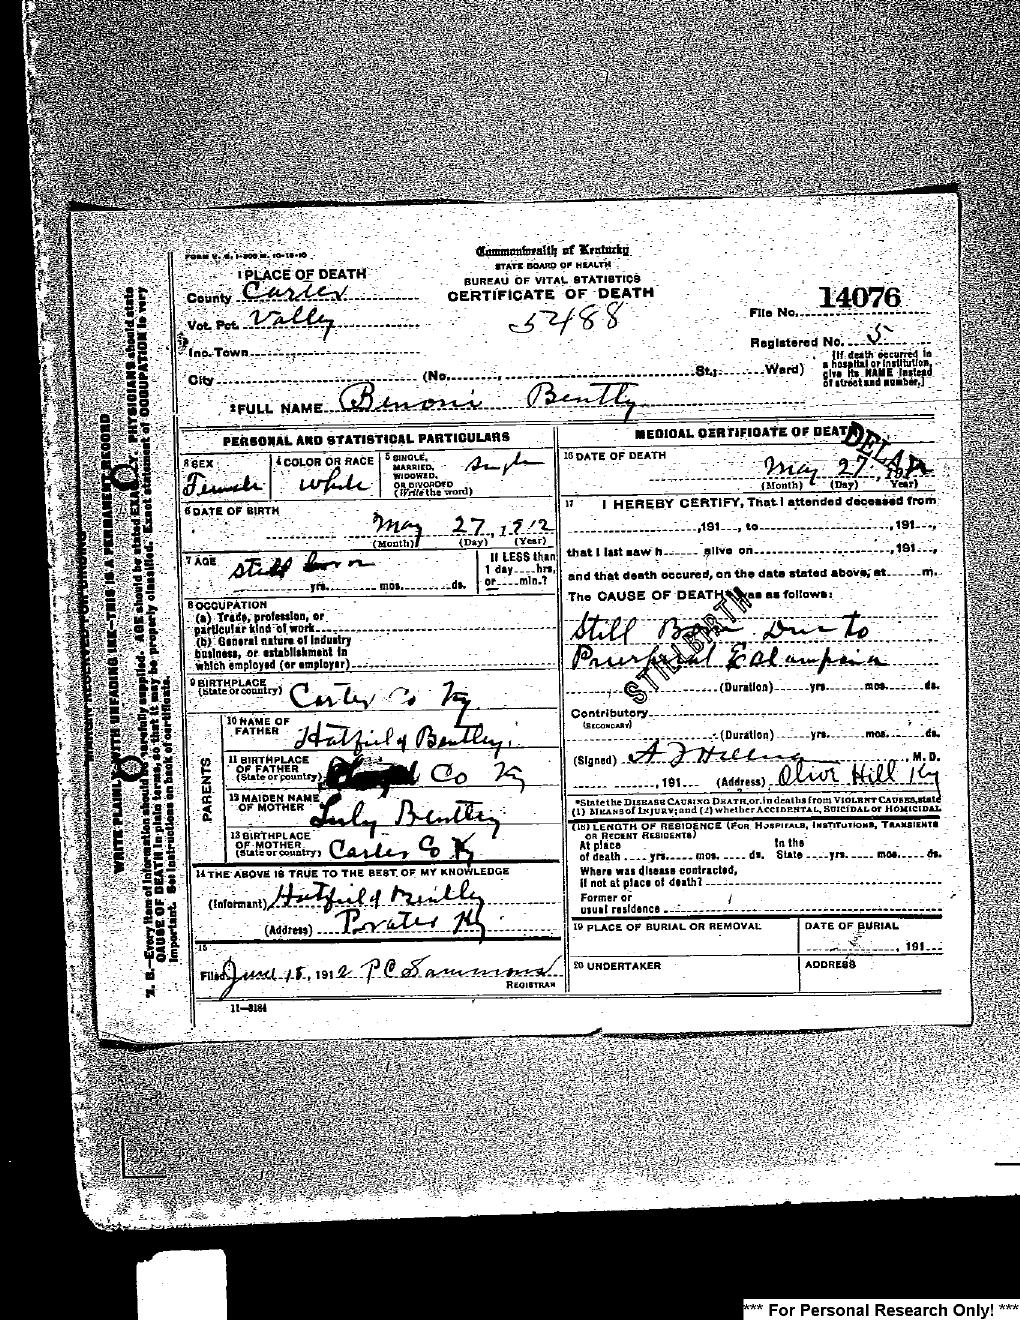 FORM V. S. 1-200 M. 10-18-10
Commonwealth of Kentucky
STATE BOARD OF HEALTH
BUREAU OF VITAL STATISTICS
CERTIFICATE OF DEATH
52488
1 PLACE OF DEATH
County Carter
Vot. Pct. Valley
Inc. Town
City (No. , St.; Ward)
File No. 14076
Registered No. 5
(If death occurred in
a hospital or institution,
give its NAME instead
of street and number.)
2 FULL NAME Benoni Bently
PERSONAL AND STATISTICAL PARTICULARS
3 SEX
Female
4 COLOR OR RACE
White
5 SINGLE,
MARRIED,
WIDOWED,
OR DIVORCED
(Write the word)
Single
6 DATE OF BIRTH
May 27, 1912
(Month) (Day) (Year)
7 AGE
Still born
yrs. mos. ds.
If LESS than
1 day hrs.
or min.?
8 OCCUPATION
(a) Trade, profession, or
particular kind of work
(b) General nature of industry
business, or establishment in
which employed (or employer)
9 BIRTHPLACE
(State or country) Carter Co Ky
PARENTS
10 NAME OF
FATHER Hatfield Bentley
11 BIRTHPLACE
OF FATHER
(State or country) Co Ky
12 MAIDEN NAME
OF MOTHER Bentley
13 BIRTHPLACE
OF MOTHER
(State or country) Carter Co Ky
14 THE ABOVE IS TRUE TO THE BEST OF MY KNOWLEDGE
(Informant) Hatfield Bently
(Address) Prater Ky
15
Filed June 15, 1912 P C Sammons
REGISTRAR
11-3184
MEDICAL CERTIFICATE OF DEATH
DELAY
16 DATE OF DEATH
May 27, 191
(Month) (Day) (Year)
17 I HEREBY CERTIFY, That I attended deceased from
, 191 , to , 191 ,
that I last saw h alive on , 191 ,
and that death occured, on the date stated above, at m.
The CAUSE OF DEATH was as follows:
Still Born Due to
Puerperal Eclampsia
STILLBIRTH
(Duration) yrs. mos. ds.
Contributory
(SECONDARY)
(Duration) yrs. mos. ds.
(Signed) , M. D.
, 191 (Address) Olive Hill Ky
*State the DISEASE CAUSING DEATH, or, in deaths from VIOLENT CAUSES, state
(1) MEANS of INJURY; and (2) whether ACCIDENTAL, SUICIDAL or HOMICIDAL
(18) LENGTH OF RESIDENCE (FOR HOSPITALS, INSTITUTIONS, TRANSIENTS
OR RECENT RESIDENTS)
At place In the
of death yrs. mos. ds. State yrs. mos. ds.
Where was disease contracted,
If not at place of death?
Former or
usual residence
19 PLACE OF BURIAL OR REMOVAL
DATE OF BURIAL
, 191
20 UNDERTAKER
ADDRESS
WRITE PLAINLY WITH UNFADING INK—THIS IS A PERMANENT RECORD
N. B.—Every item of information should be carefully supplied. AGE should be stated EXACTLY. PHYSICIANS should state
CAUSE OF DEATH in plain terms, so that it may be properly classified. Exact statement of OCCUPATION is very
important. See instructions on back of certificate.
*** For Personal Research Only! ***